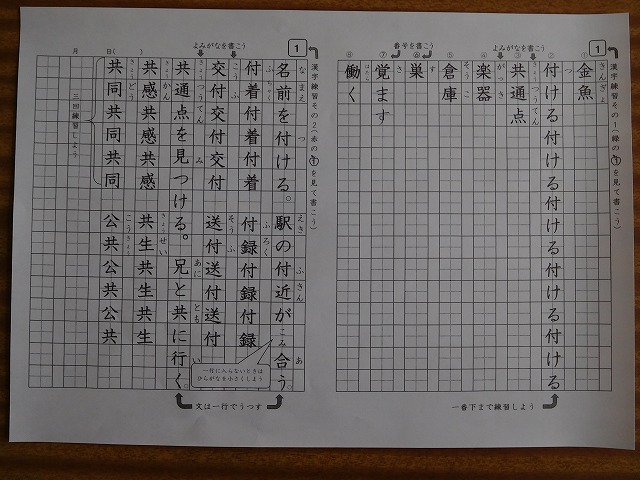 漢字練習その1(緑の①を見て書こう)
1
よみがなを書こう
番号を書こう
① 金魚
きんぎょ
② 付ける付ける付ける付ける付ける
つ
③ 共通点
きょうつうてん
④ 楽器
がっき
⑤ 倉庫
そうこ
⑥ 巣
す
⑦ 覚ます
さ
⑧ 働く
はたら
一番下まで練習しよう
漢字練習その2(赤の①を見て書こう)
1
よみがなを書こう
名前を付ける。駅の付近がこみ合う。
なまえ つ えき ふきん あ
付着付着付着 付録付録付録
ふちゃく ふろく
交付交付交付 送付送付送付
こうふ そうふ
共通点を見つける。兄と共に行く。
きょうつうてん み あに とも い
共感共感共感 共生共生共生
きょうかん きょうせい
共同共同共同 公共公共公共
きょうどう こうきょう
三回練習しよう
月 日( )
一行に入らないときは
ひらがなを小さくしよう
文は一行でうつす